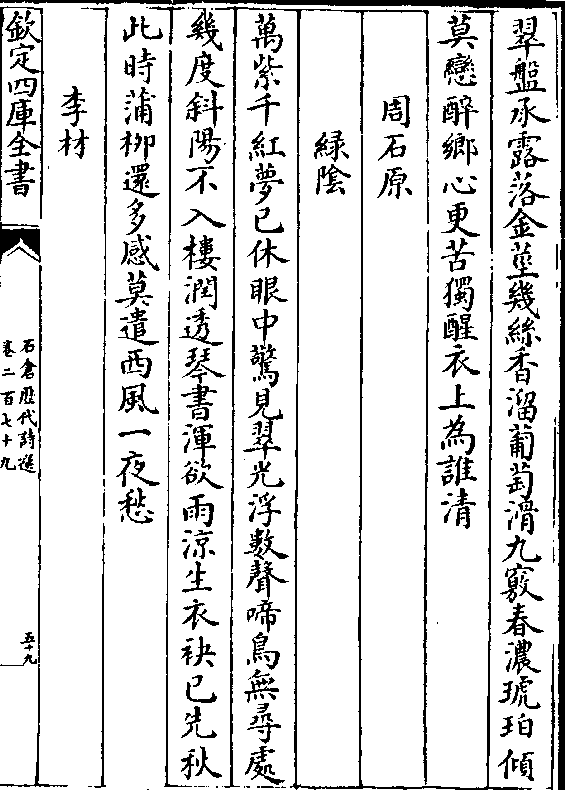 翠盤承露落金莖幾絲香溜葡萄滑九竅春濃琥珀傾
莫戀醉鄉心更苦獨醒衣上為誰清
周石原
緑陰
萬紫千紅夢已休眼中驚見翠光浮數聲啼鳥無尋處
幾度斜陽不入樓潤透琴書渾欲雨涼生衣袂已先秋
此時蒲栁還多感莫遣西風一夜愁
李材
欽定四庫全書
石倉歷代詩選
卷二百七十九
五十九